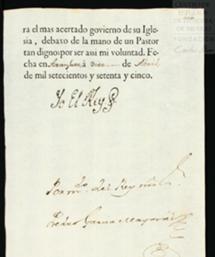 ra el mas acertado govierno de su Igle-
sia, debaxo de la mano de un Pastor
tan digno: por ser assi mi voluntad. Fe-
cha en Aranjuez à de Abril
de mil setecientos y setenta y cinco.
Yo El Rey
Por m.do del Rey
Pedro Garcia Mayoral